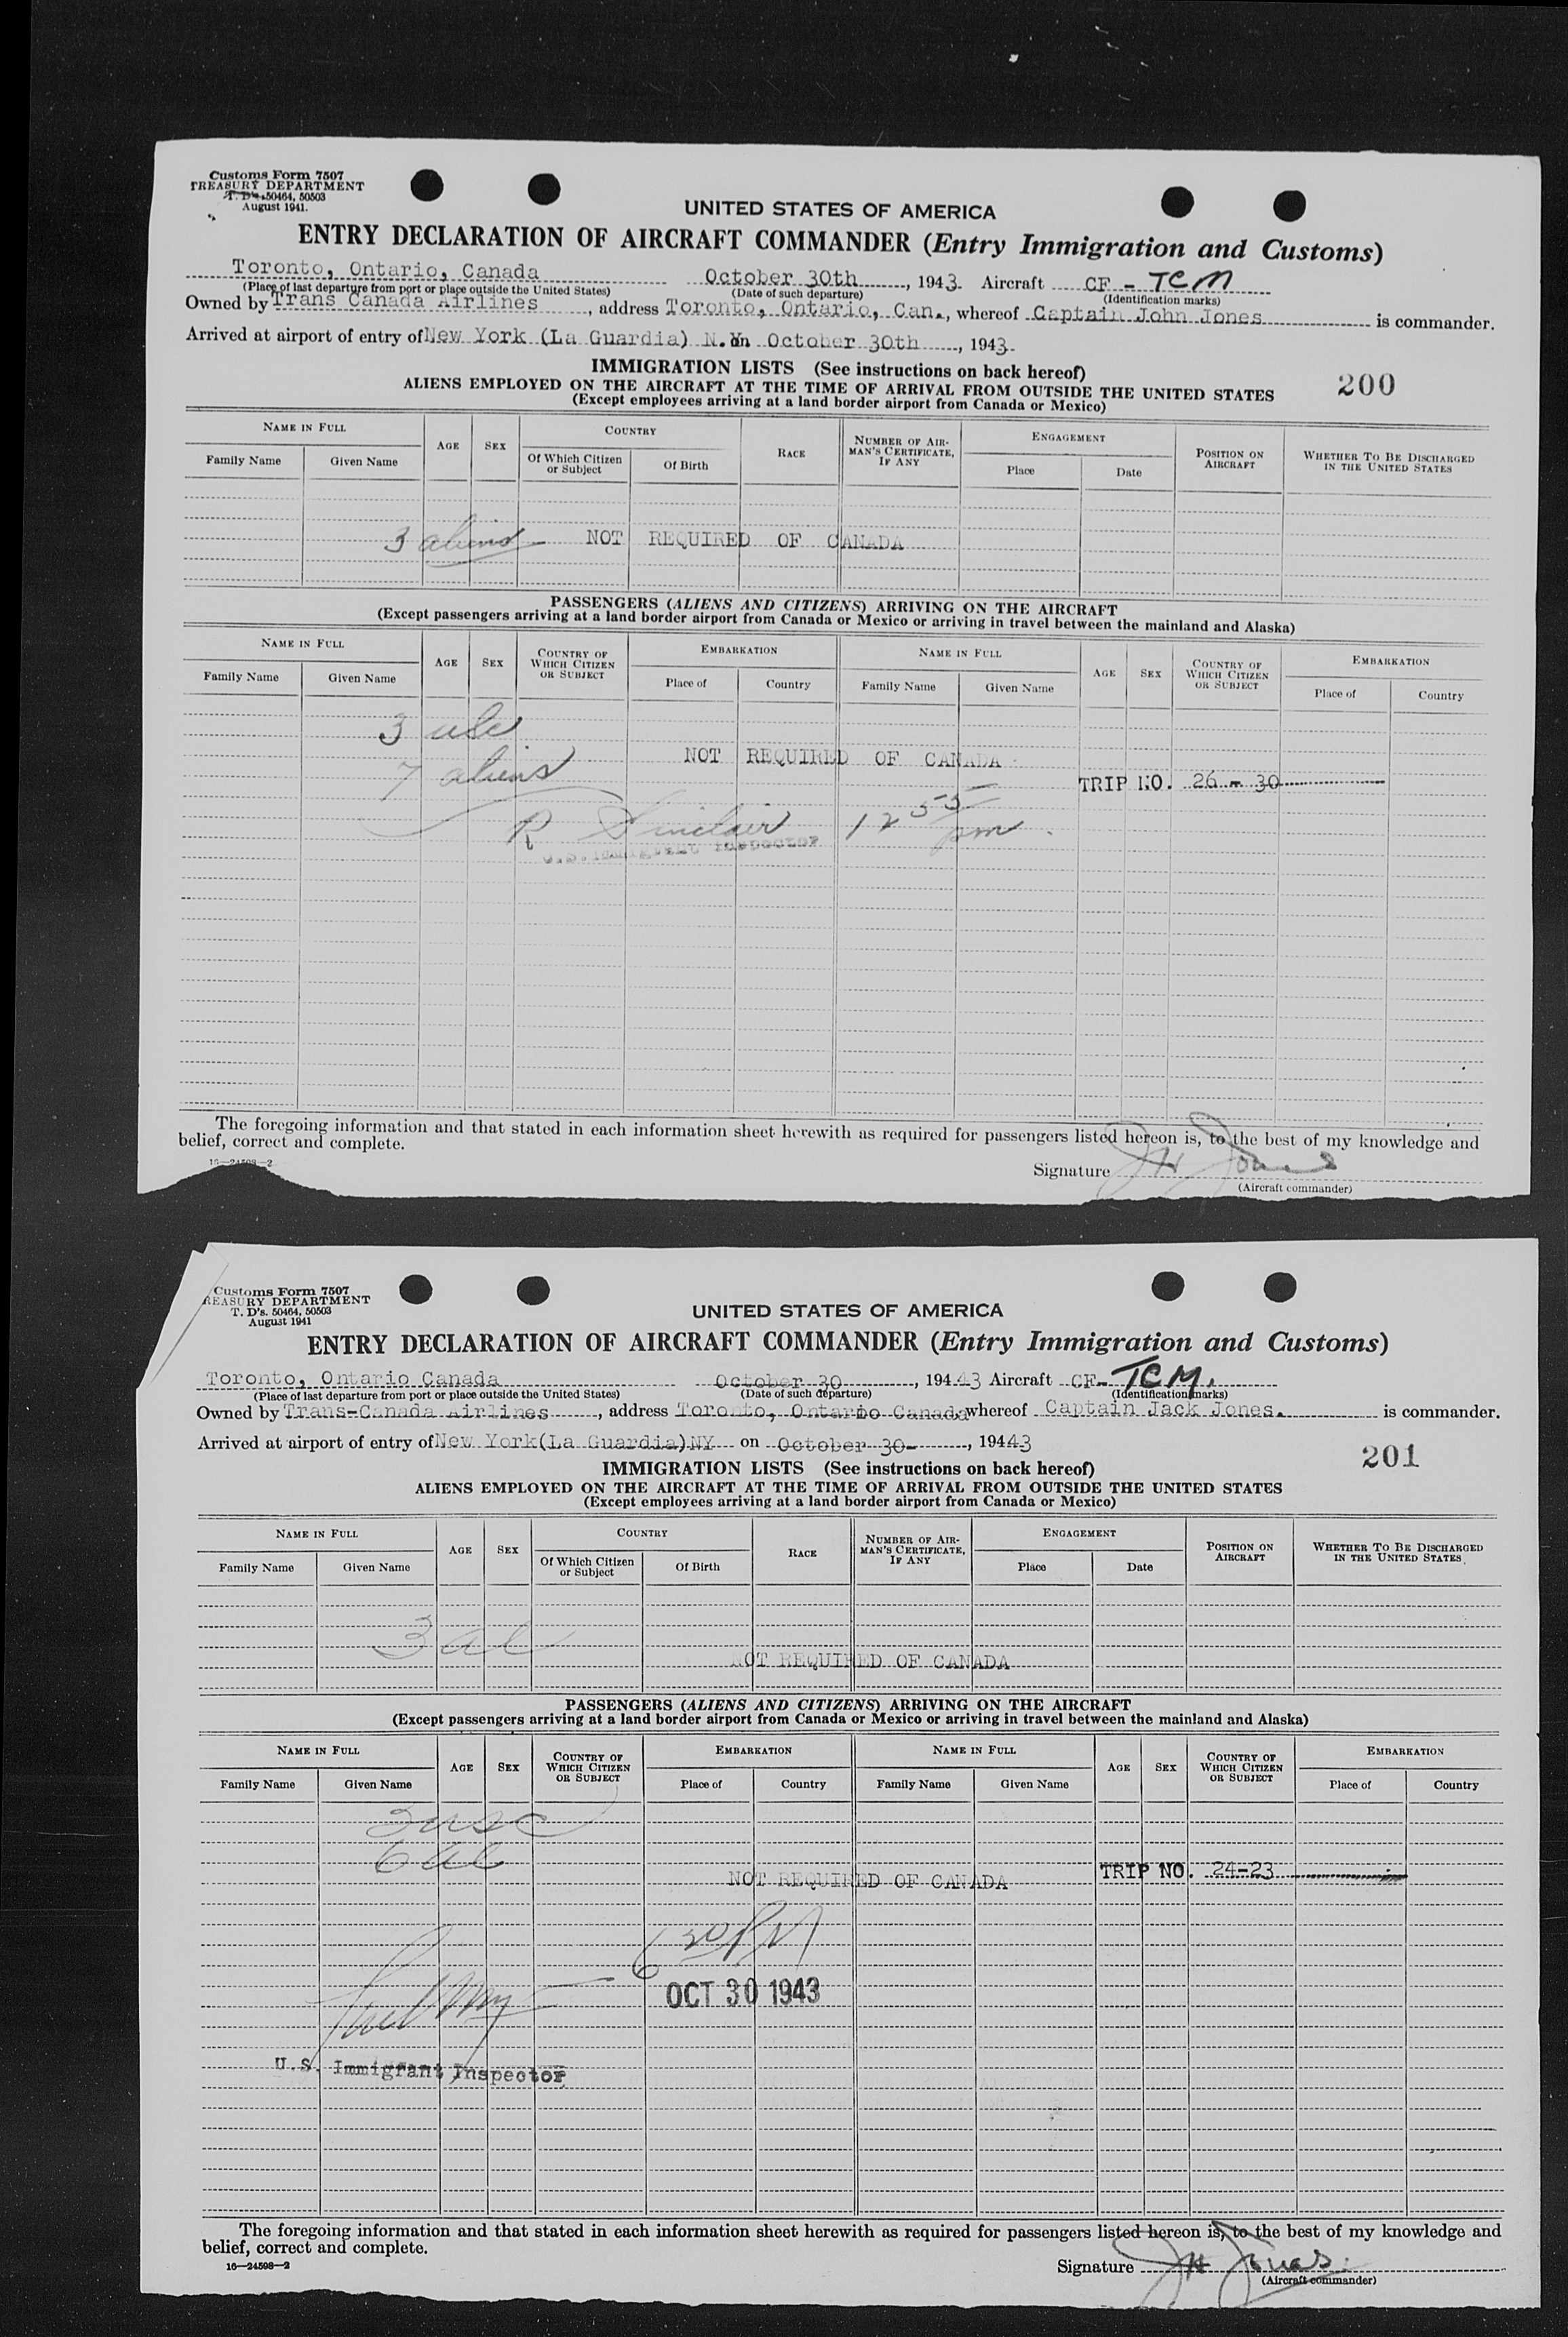 Customs Form 7507
TREASURY DEPARTMENT
T. D's. 50464, 50503
August 1941.
UNITED STATES OF AMERICA
ENTRY DECLARATION OF AIRCRAFT COMMANDER (Entry Immigration and Customs)
Toronto, Ontario, Canada October 30th, 1943. Aircraft CF - TCM
(Place of last departure from port or place outside the United States) (Date of such departure) (Identification marks)
Owned by Trans Canada Airlines, address Toronto, Ontario, Can., whereof Captain John Jones is commander.
Arrived at airport of entry of New York (La Guardia) N.Y. on October 30th, 1943.
IMMIGRATION LISTS (See instructions on back hereof)
200
ALIENS EMPLOYED ON THE AIRCRAFT AT THE TIME OF ARRIVAL FROM OUTSIDE THE UNITED STATES
(Except employees arriving at a land border airport from Canada or Mexico)
NAME IN FULL AGE SEX COUNTRY RACE NUMBER OF AIRMAN'S CERTIFICATE, IF ANY ENGAGEMENT POSITION ON AIRCRAFT WHETHER TO BE DISCHARGED IN THE UNITED STATES
Family Name Given Name Of Which Citizen or Subject Of Birth Place Date
3 aliens NOT REQUIRED OF CANADA
PASSENGERS (ALIENS AND CITIZENS) ARRIVING ON THE AIRCRAFT
(Except passengers arriving at a land border airport from Canada or Mexico or arriving in travel between the mainland and Alaska)
NAME IN FULL AGE SEX COUNTRY OF WHICH CITIZEN OR SUBJECT EMBARKATION NAME IN FULL AGE SEX COUNTRY OF WHICH CITIZEN OR SUBJECT EMBARKATION
Family Name Given Name Place of Country Family Name Given Name Place of Country
3
NOT REQUIRED OF CANADA
7 aliens
TRIP NO. 26 - 30
R Sinclair 12 55 pm
U.S. Immigrant Inspector
The foregoing information and that stated in each information sheet herewith as required for passengers listed hereon is, to the best of my knowledge and
belief, correct and complete.
16—24598—2
Signature JH Jones
(Aircraft commander)
Customs Form 7507
REASURY DEPARTMENT
T. D's. 50464, 50503
August 1941
UNITED STATES OF AMERICA
ENTRY DECLARATION OF AIRCRAFT COMMANDER (Entry Immigration and Customs)
Toronto, Ontario Canada October 30, 194 43 Aircraft CF- TCM.
(Place of last departure from port or place outside the United States) (Date of such departure) (Identification marks)
Owned by Trans-Canada Airlines, address Toronto, Ontario Canada whereof Captain Jack Jones. is commander.
Arrived at airport of entry of New York(La Guardia)NY on October 30-, 19443
201
IMMIGRATION LISTS (See instructions on back hereof)
ALIENS EMPLOYED ON THE AIRCRAFT AT THE TIME OF ARRIVAL FROM OUTSIDE THE UNITED STATES
(Except employees arriving at a land border airport from Canada or Mexico)
NAME IN FULL AGE SEX COUNTRY RACE NUMBER OF AIRMAN'S CERTIFICATE, IF ANY ENGAGEMENT POSITION ON AIRCRAFT WHETHER TO BE DISCHARGED IN THE UNITED STATES
Family Name Given Name Of Which Citizen or Subject Of Birth Place Date
3 al
NOT REQUIRED OF CANADA
PASSENGERS (ALIENS AND CITIZENS) ARRIVING ON THE AIRCRAFT
(Except passengers arriving at a land border airport from Canada or Mexico or arriving in travel between the mainland and Alaska)
NAME IN FULL AGE SEX COUNTRY OF WHICH CITIZEN OR SUBJECT EMBARKATION NAME IN FULL AGE SEX COUNTRY OF WHICH CITIZEN OR SUBJECT EMBARKATION
Family Name Given Name Place of Country Family Name Given Name Place of Country
3 usc
6 al
NOT REQUIRED OF CANADA TRIP NO. 24-23
6 20 PM
OCT 30 1943
U.S. Immigrant Inspector
The foregoing information and that stated in each information sheet herewith as required for passengers listed hereon is, to the best of my knowledge and
belief, correct and complete.
16—24598—2
Signature JH Jones.
(Aircraft commander)